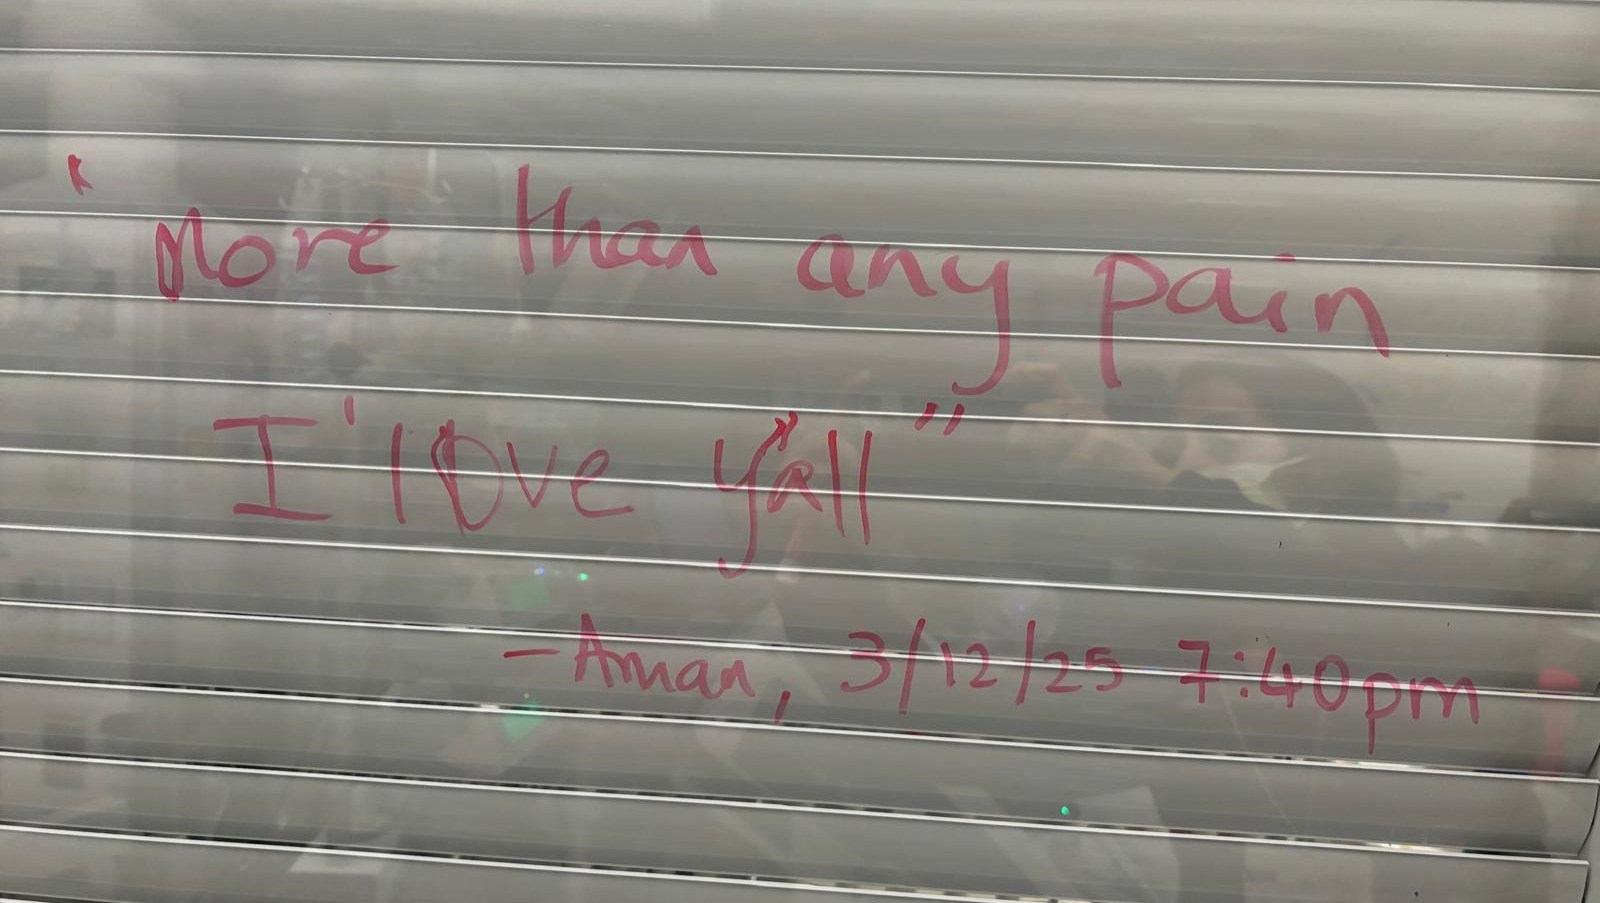 "More than any pain
I'love y'all"
-Aman, 3/12/25 7:40pm